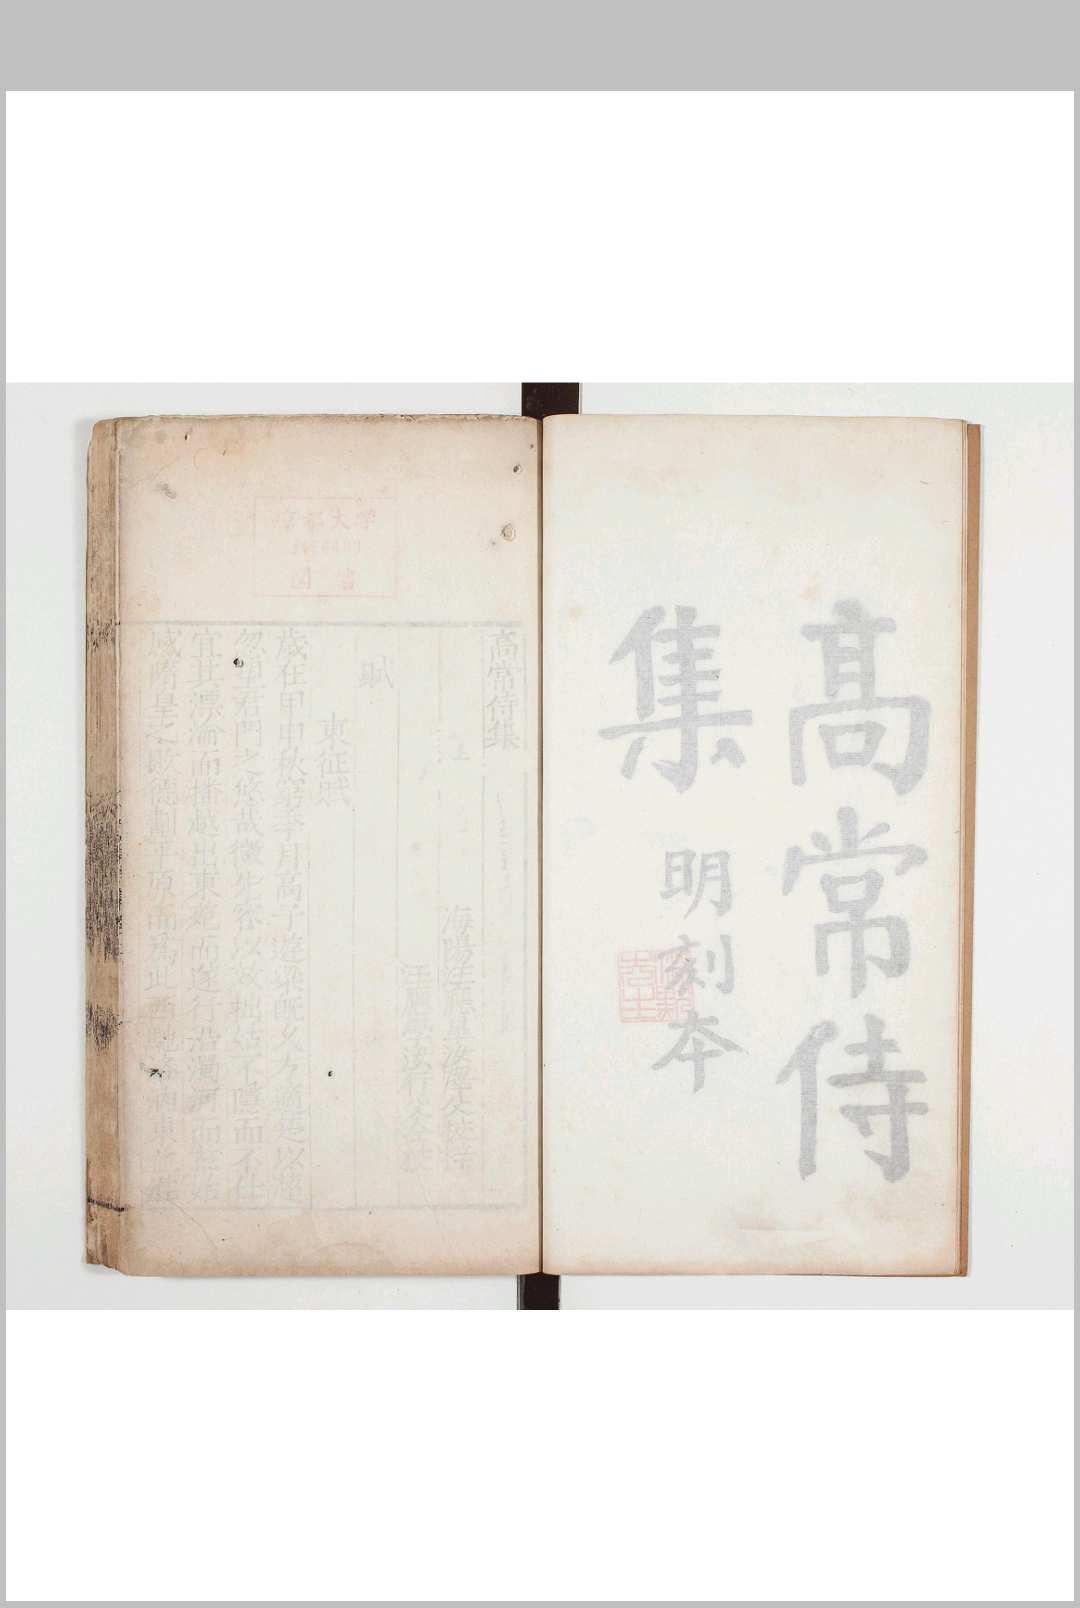 高常侍
集
明刻本
高常侍集
海陽汪應皐汝
汪應
賦
東征賦
歲在甲申秋窮季月高子遊梁既久方適楚以超
忽望君門之悠哉微先容以效拙姑不隱而不仕
宜其漂淪而播越出東苑而遂行沿濁河而兹始
感隋皇之敗德劃平原而爲此西馳洛汭東並淮
京都大学
図書